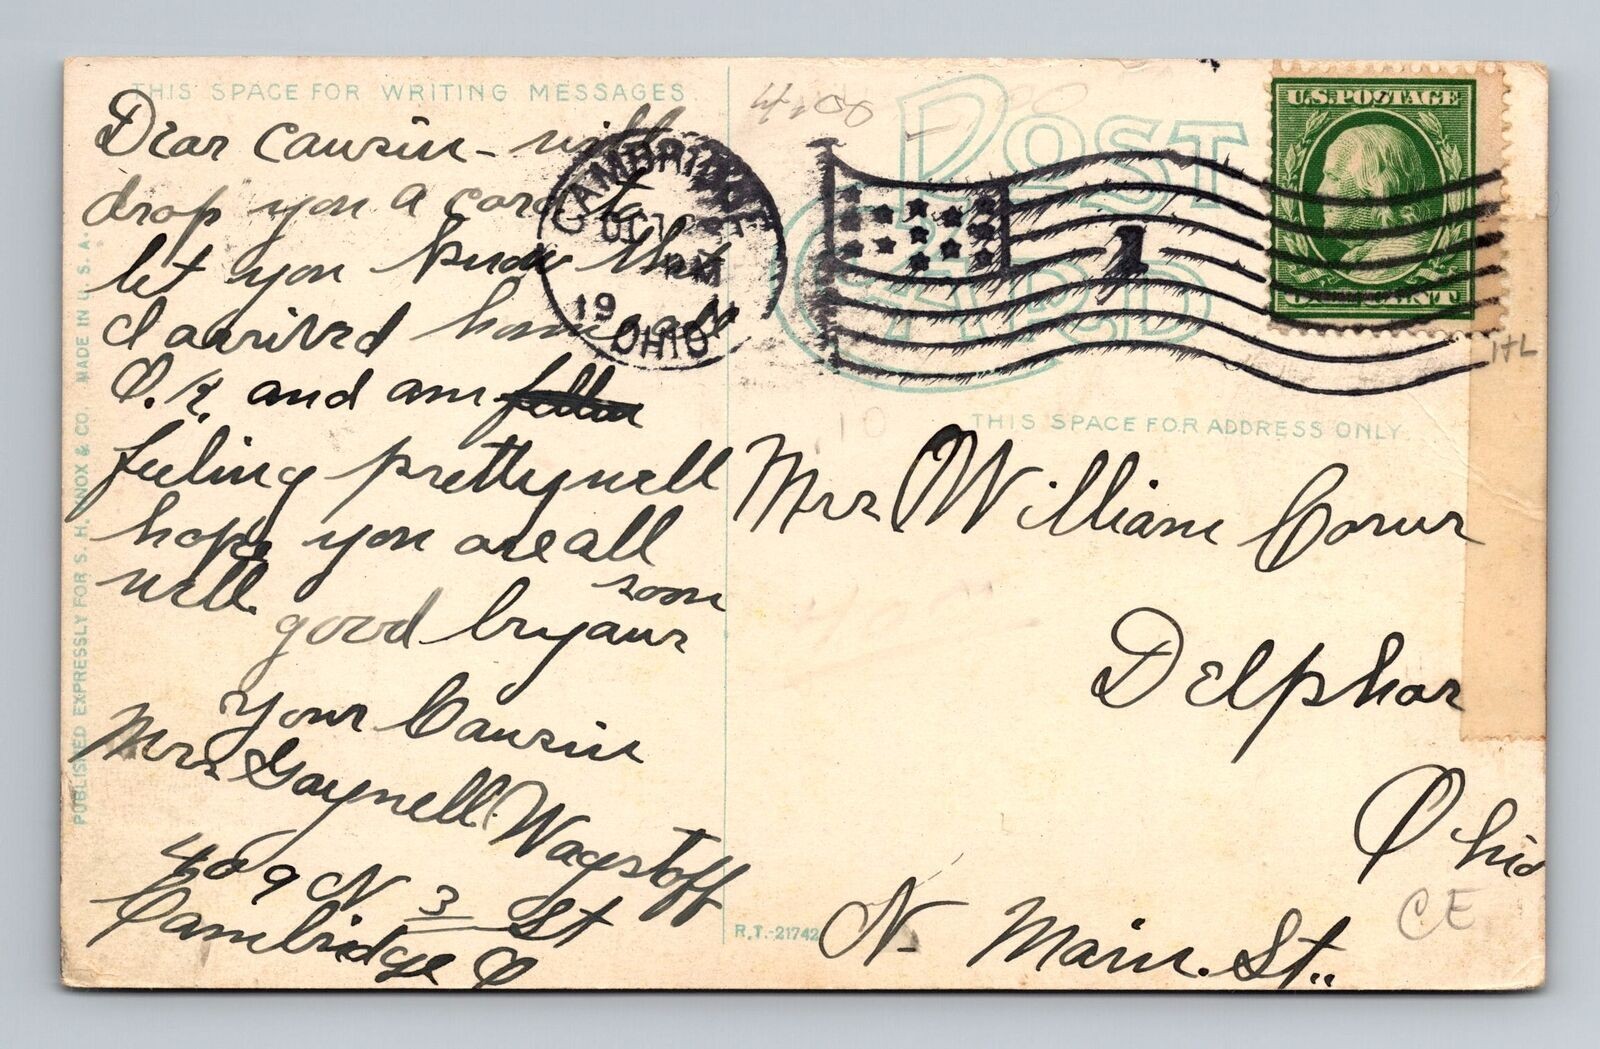 THIS SPACE FOR WRITING MESSAGES
Dear Cousin - will
drop you a card to
let you know that
I arrived home all
O.K. and am
feeling pretty well
hope you are all
well. soon
good by
your Cousin
Mrs Gaynell Wagstaff
409 N 3 St
Cambridge O
PUBLISHED EXPRESSLY FOR S. H. KNOX & CO. MADE IN U. S. A.
4.00
POST CARD
CAMBRIDGE
OCT
19
OHIO
1
U.S. POSTAGE
HL
THIS SPACE FOR ADDRESS ONLY
Mrs William
Delphos
Ohio
N. Main. St..
CE
R.T.-21742